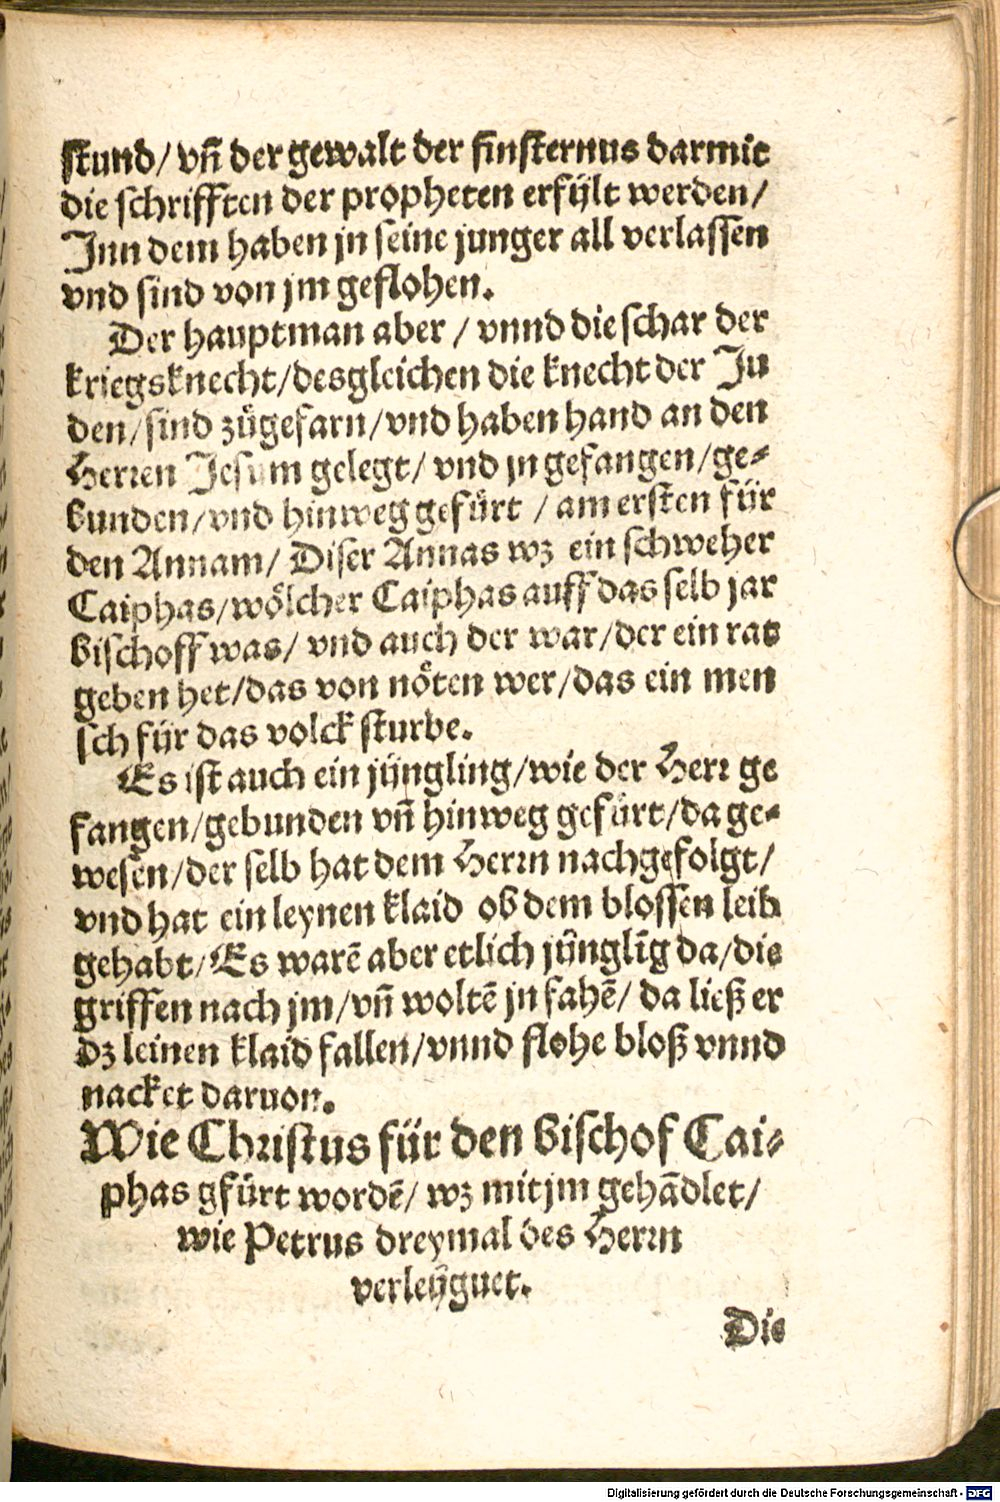 stund/ vñ der gewalt der finsternus darmit
die schrifften der propheten erfült werden/
Inn dem haben jn seine junger all verlassen
vnd sind von jm geflohen.
Der hauptman aber / vnnd die schar der
kriegsknecht/desgleichen die knecht der Ju
den/sind zůgefarn/vnd haben hand an den
Herren Jesum gelegt/ vnd jn gefangen/ge-
bunden/vnd hinweg gefürt / am ersten für
den Annam/ Diser Annas wz ein schweher
Caiphas/wölcher Caiphas auff das selb jar
bischoff was/ vnd auch der war/der ein rat
geben het/das von nöten wer/das ein men
sch für das volck sturbe.
Es ist auch ein jüngling/wie der Herr ge
fangen/gebunden vñ hinweg gefürt/da ge-
wesen/der selb hat dem Herrn nachgefolgt/
vnd hat ein leynen klaid ob dem blossen leib
gehabt/Es warē aber etlich jünglīg da/die
griffen nach jm/vñ woltē jn fahē/ da ließ er
dz leinen klaid fallen/vnnd flohe bloß vnnd
nacket daruon.
Wie Christus für den bischof Cai-
phas gfürt wordē/ wz mit jm gehādlet/
wie Petrus dreymal des Herrn
verleügnet.
Die
Digitalisierung gefördert durch die Deutsche Forschungsgemeinschaft - DFG